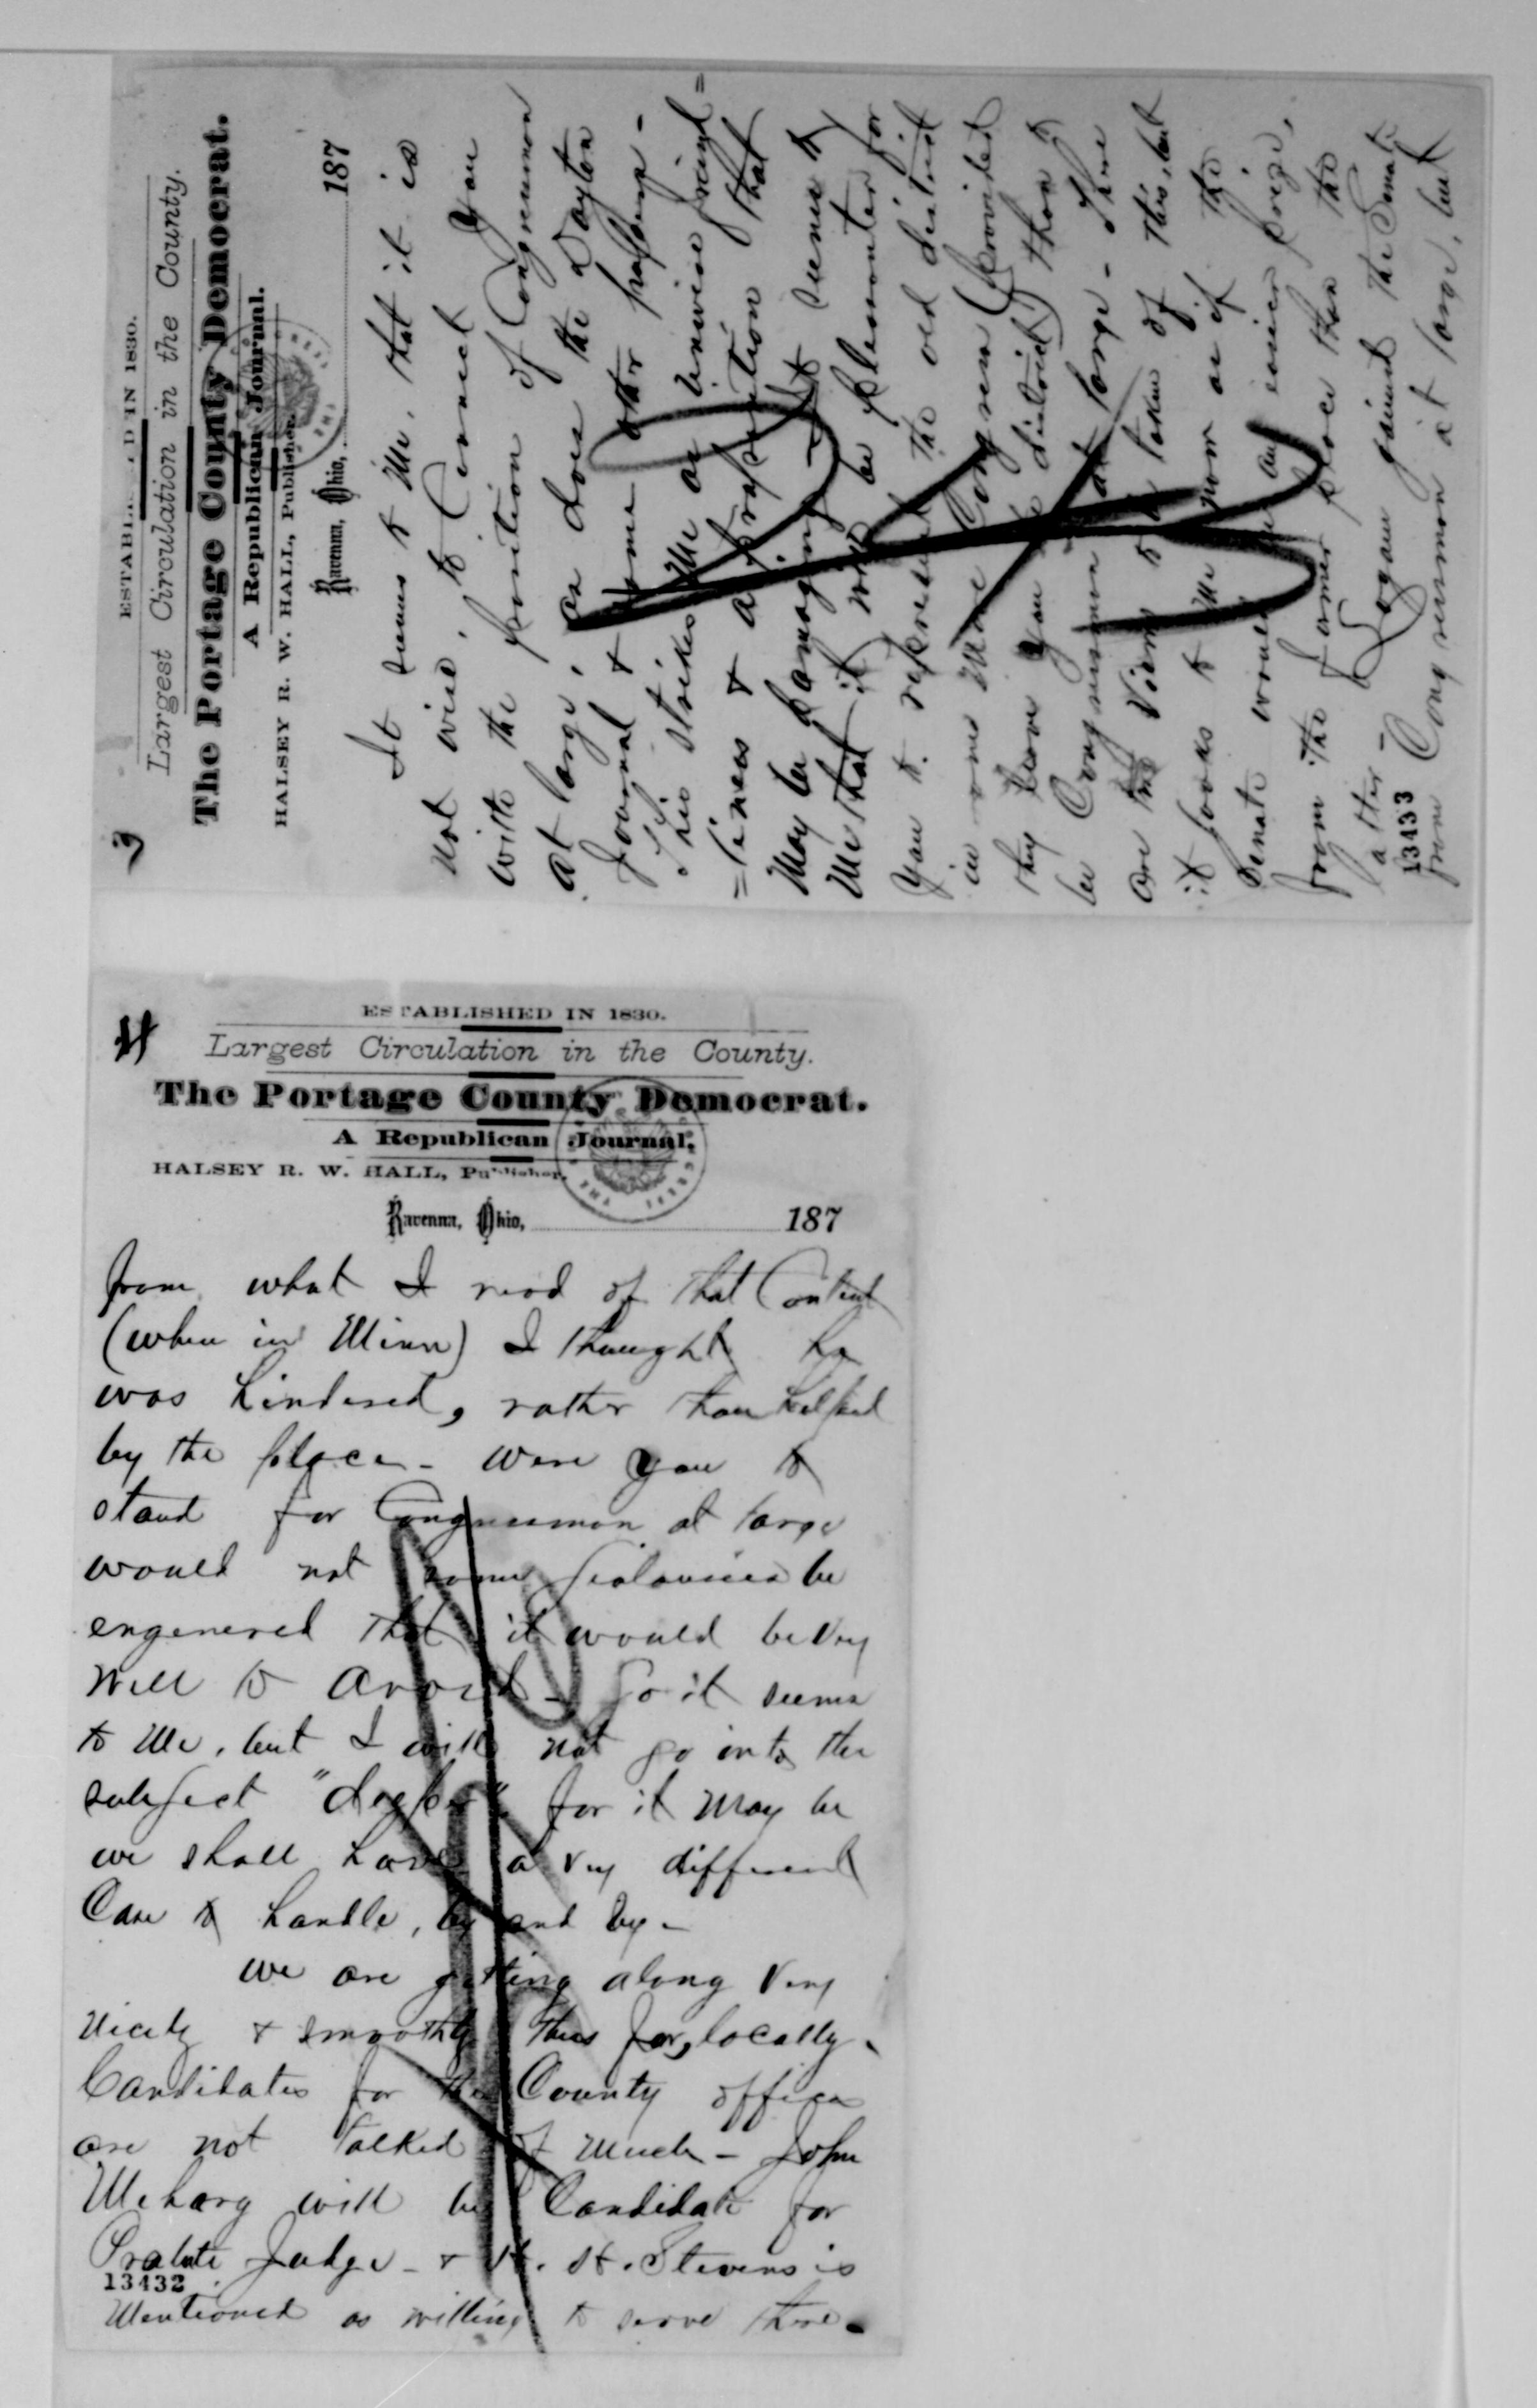 3
ESTABLISHED IN 1830.
Largest Circulation in the County.
The Portage County Democrat.
A Republican Journal.
HALSEY R. W. HALL, Publisher.
Ravenna, Ohio, 187
It seems to me, that it is
not wise, to connect you
with the position of Congressman
at large, as does the Dayton
Journal & some other papers -
This strikes me as unwise friend=
=liness & a proposition that
may be damaging - It seems to
me that it will be pleasanter for
you to represent the old district
in one more Congress (provided
they leave you the district) than to
be Congressman at large - There
are two views to be taken of this, but
it looks to me now as if the
Senate would be an easier prize,
from the former place than the
latter - Logan gained the Senate
13433
from Congressman at large, but
4
ESTABLISHED IN 1830.
Largest Circulation in the County.
The Portage County Democrat.
A Republican Journal.
HALSEY R. W. HALL, Publisher.
Ravenna, Ohio, 187
from what I read of that Contest
(when in Minn) I thought he
was hindered, rather than helped
by the place - were you to
stand for Congressman at large
would not some jealousies be
engenered that it would be very
well to avoid - So it seems
to me, but I will not go into the
subject "deeper" for it may be
we shall have a very different
Case to handle, by and by -
we are getting along very
nicely & smoothly thus far, locally.
Candidates for the County offices
are not talked of much - John
Meharg will be Candidate for
Probate Judge - & H. H. Stevens is
13432
mentioned as willing to serve there.